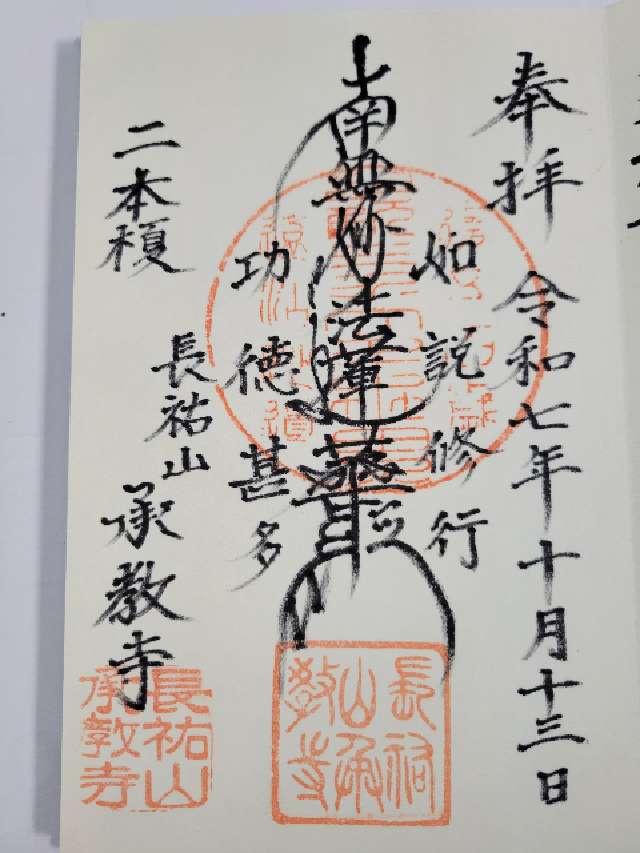 奉拝 令和七年十月十三日
如説修行
南無妙法蓮華経
功徳甚多
二本榎
長祐山
承教寺
長祐山承教寺
長祐山
承教寺